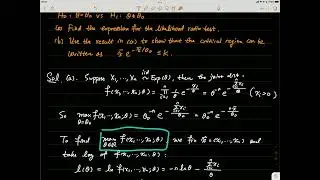 H₀: θ=θ₀ vs H₁: θ≠θ₀
(a) Find the expression for the likelihood ratio test.
(b) Use the result in (a) to show that the critical region can be
written as
Sol (a). Suppose X₁,…,Xₙ iid Exp(θ), then the joint dist.
f(x₁,…,xₙ;θ) = ∏ᵢ₌₁ⁿ 1/θ e^(-xᵢ/θ) = θ⁻ⁿ e^(-Σxᵢ/θ) (xᵢ>0)
So max_{θ=θ₀} f(x₁,…,xₙ;θ) = θ₀⁻ⁿ e^(-Σxᵢ/θ₀)
To find max f(x₁,…,xₙ;θ) we fix = (x₁,…,xₙ) and
take log of f(x₁,…,xₙ;θ):
l(θ) = ln f(x₁,…,xₙ;θ) = -n lnθ - Σxᵢ/θ